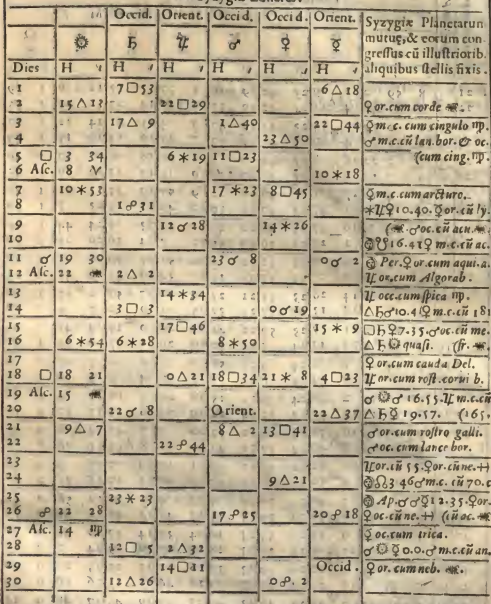 Occid. Orient. Occid. Occid. Orient. Syzygiæ Planetarum
☼ ♄ ♃ ♂ ♀ ☿ mutuę, & eorum con
gressus cū illustriorib.
Dies H H H H H H aliquibus stellis fixis.
1 7□53 6△18
2 15△13 22□29 ♀ or. cum corde
3 17△9 1△40 22□44 ☿ m. c. cum cingulo ♍.
4 23△50 ♂ m. c. cū lan. bor. & oc.
5 □ 3 34 6✶19 11□23 (cum cing. ♍.
6 Asc. 8 ♈ 10✶18
7 10✶53 17✶23 8□45 ☿ m. c. cum arcturo.
8 1☍31 ✶♃♀10.40. ☿ or. cū ly.
9 12☌28 14✶26 ♂ oc. cū acu.
10 16.41 ♀ m. c. cū ac.
11 ☌ 19 30 23☌8 0☌2 Per. ♀ or. cum aqui. a.
12 Asc. 22 2△2 ♃ or. cum Algorab.
13 14✶34 ♃ occ. cum spica ♍.
14 3□3 0☌19 △♄♂10.4 (☿ m. c. cū 181
15 17□46 15✶9 □♄♀7.35. ♂ oc. cū me.
16 6✶54 6✶28 8✶50 △♄☼ quasi. (fr.
17 ♀ or. cum cauda Del.
18 □ 18 21 0△21 18□34 21✶8 4□23 ♃ or. cum rost. corui b.
19 Asc. 15 ☌☼♂16.55. ♃ m. c. cū
20 22☌8 Orient. 22△37 △♄☿19.57. (165.
21 9△7 8△2 13□41 ♂ or. cum rostro galli.
22 22☍44 ♂ oc. cum lance bor.
23 ♃ or. cū 55. ♀ or. cū ne.
24 9△21 ☊3 46 ♂ m. c. cū 70. c
25 23✶23 Ap. ☌♂☿12.35. ♀ or.
26 ☍ 22 28 17☍25 20☍18 ♀ oc. cū ne. (cū oc.
27 Asc. 14 ♍ ♀ oc. cum trica.
28 12□5 2△32 ☌☼☿0.0. ♂ m. c. cū an.
29 14□11 Occid. ♀ or. cum neb.
30 12△26 0☍2